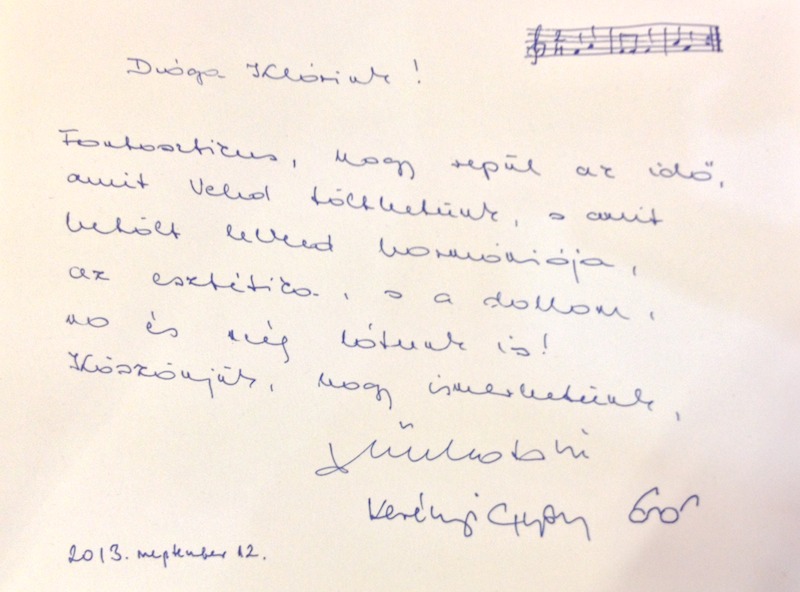 Drága Klárink!
Fantasztikus, hogy repül az idő,
amit Veled tölthetünk, s amit
betölt lelked harmóniája,
az esztétika, s a dallam,
no és még látunk is!
Köszönjük, hogy ismerhetünk,
Kerényi
2013. szeptember 12.